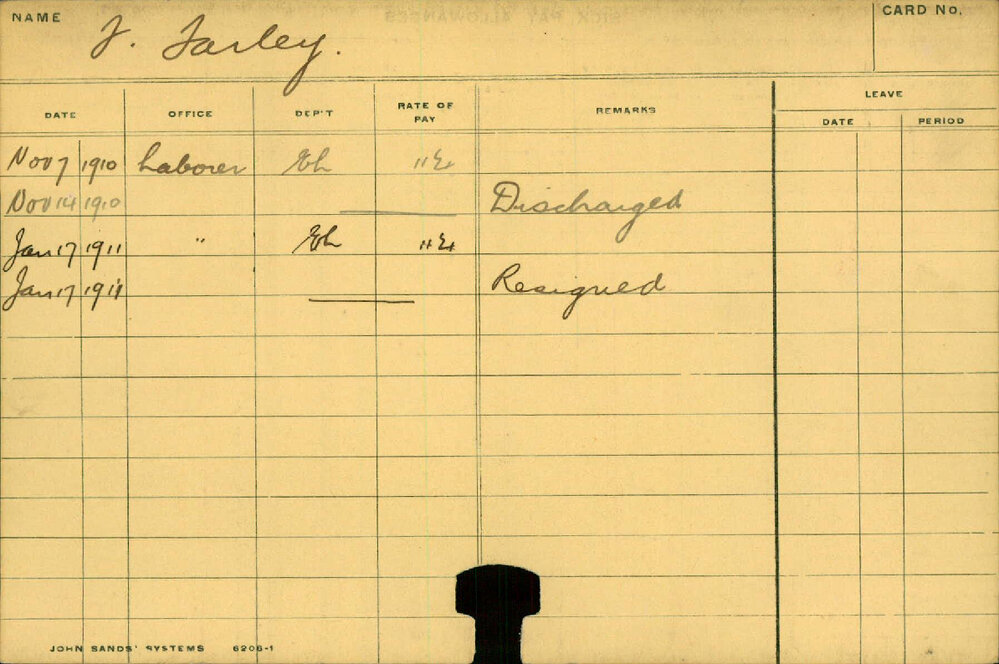 NAME F. Farley. CARD No.
LEAVE
DATE OFFICE DEP'T RATE OF PAY REMARKS DATE PERIOD
Nov 7 1910 Laborer
Nov 14 1910 Discharged
Jan 17 1911 "
Jan 17 1911 Resigned
JOHN SANDS' SYSTEMS 6206-1